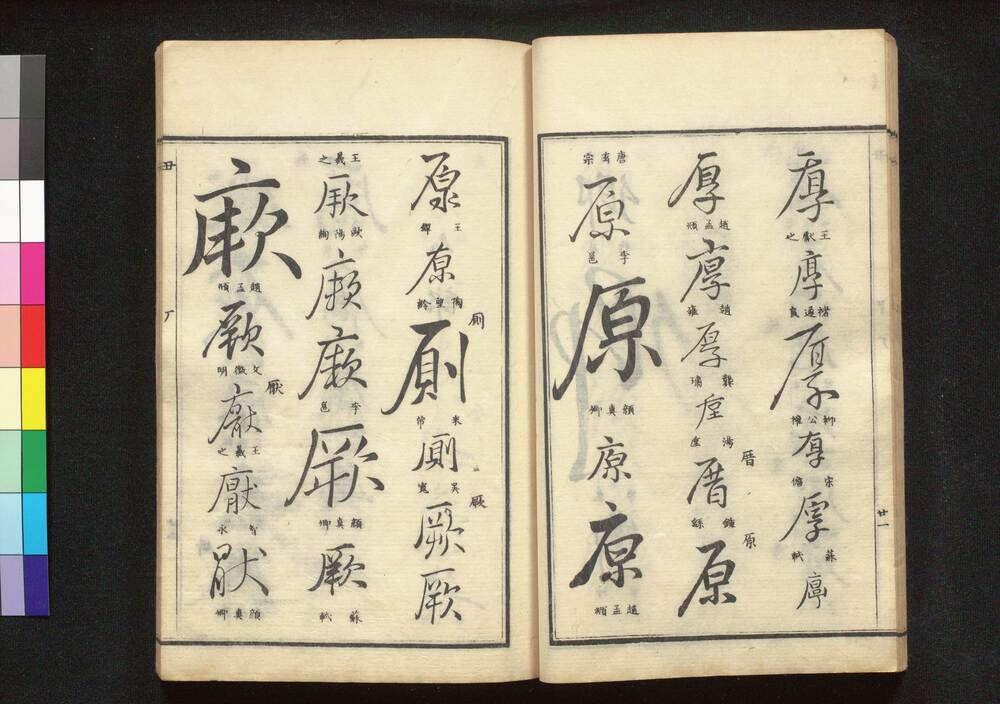 厚
王獻之
厚
褚遂良
厚
柳公權
厚
宋儋
厚
蘇軾
厚
厚
趙孟頫
厚
趙雍
厚
厚
厝
厝
鍾繇
原
原
唐玄宗
原
李邕
原
顏真卿
原
原
趙孟頫
廿一
原
王鐸
原
陶望齡
厠
厠
米芾
厠
吳寬
厥
厥
厥
王羲之
厥
歐陽詢
厥
厥
李邕
厥
顏真卿
厥
蘇軾
厥
趙孟頫
厥
文徵明
厭
厭
王羲之
厭
智永
厭
顏真卿
丑
厂